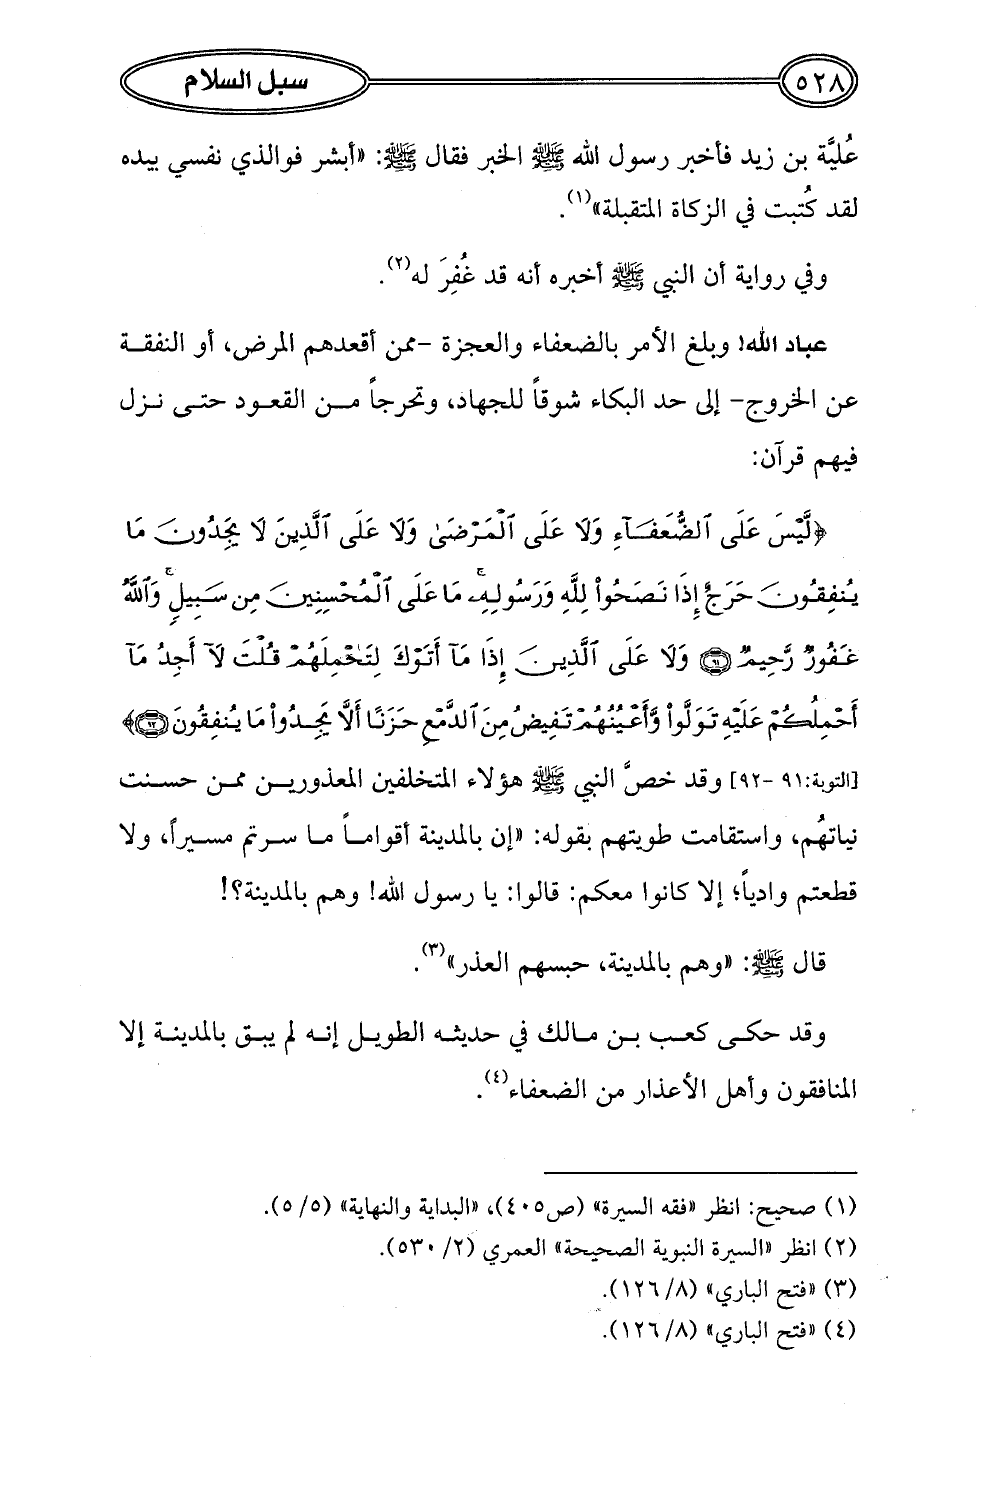 ٥٢٨ سبل السلام
عُليَّة بن زيد فأخبر رسول الله ﷺ الخبر فقال ﷺ: «أبشر فوالذي نفسي بيده
لقد كُتبت في الزكاة المتقبلة»(١).
وفي رواية أن النبي ﷺ أخبره أنه قد غُفِرَ له(٢).
عباد الله! وبلغ الأمر بالضعفاء والعجزة -ممن أقعدهم المرض، أو النفقة
عن الخروج- إلى حد البكاء شوقاً للجهاد، وتحرجاً من القعود حتى نزل
فيهم قرآن:
﴿لَّيْسَ عَلَى ٱلضُّعَفَآءِ وَلَا عَلَى ٱلْمَرْضَىٰ وَلَا عَلَى ٱلَّذِينَ لَا يَجِدُونَ مَا
يُنفِقُونَ حَرَجٌ إِذَا نَصَحُوا۟ لِلَّهِ وَرَسُولِهِۦ ۚ مَا عَلَى ٱلْمُحْسِنِينَ مِن سَبِيلٍ ۚ وَٱللَّهُ
غَفُورٌ رَّحِيمٌ ۝٩١ وَلَا عَلَى ٱلَّذِينَ إِذَا مَآ أَتَوْكَ لِتَحْمِلَهُمْ قُلْتَ لَآ أَجِدُ مَآ
أَحْمِلُكُمْ عَلَيْهِ تَوَلَّوا۟ وَّأَعْيُنُهُمْ تَفِيضُ مِنَ ٱلدَّمْعِ حَزَنًا أَلَّا يَجِدُوا۟ مَا يُنفِقُونَ ۝٩٢﴾
[التوبة:٩١ -٩٢] وقد خصَّ النبي ﷺ هؤلاء المتخلفين المعذورين ممن حسنت
نياتهُم، واستقامت طويتهم بقوله: «إن بالمدينة أقواماً ما سرتم مسيراً، ولا
قطعتم وادياً؛ إلا كانوا معكم: قالوا: يا رسول الله! وهم بالمدينة؟!
قال ﷺ: «وهم بالمدينة، حبسهم العذر»(٣).
وقد حكى كعب بن مالك في حديثه الطويل إنه لم يبق بالمدينة إلا
المنافقون وأهل الأعذار من الضعفاء(٤).
(١) صحيح: انظر «فقه السيرة» (ص٤٠٥)، «البداية والنهاية» (٥/٥).
(٢) انظر «السيرة النبوية الصحيحة» العمري (٢/ ٥٣٠).
(٣) «فتح الباري» (٨/ ١٢٦).
(٤) «فتح الباري» (٨/ ١٢٦).